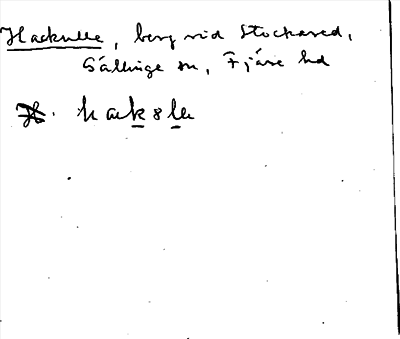 Hackulle, berg vid Stockared,
Gällinge sn, Fjäre hd
hak8le